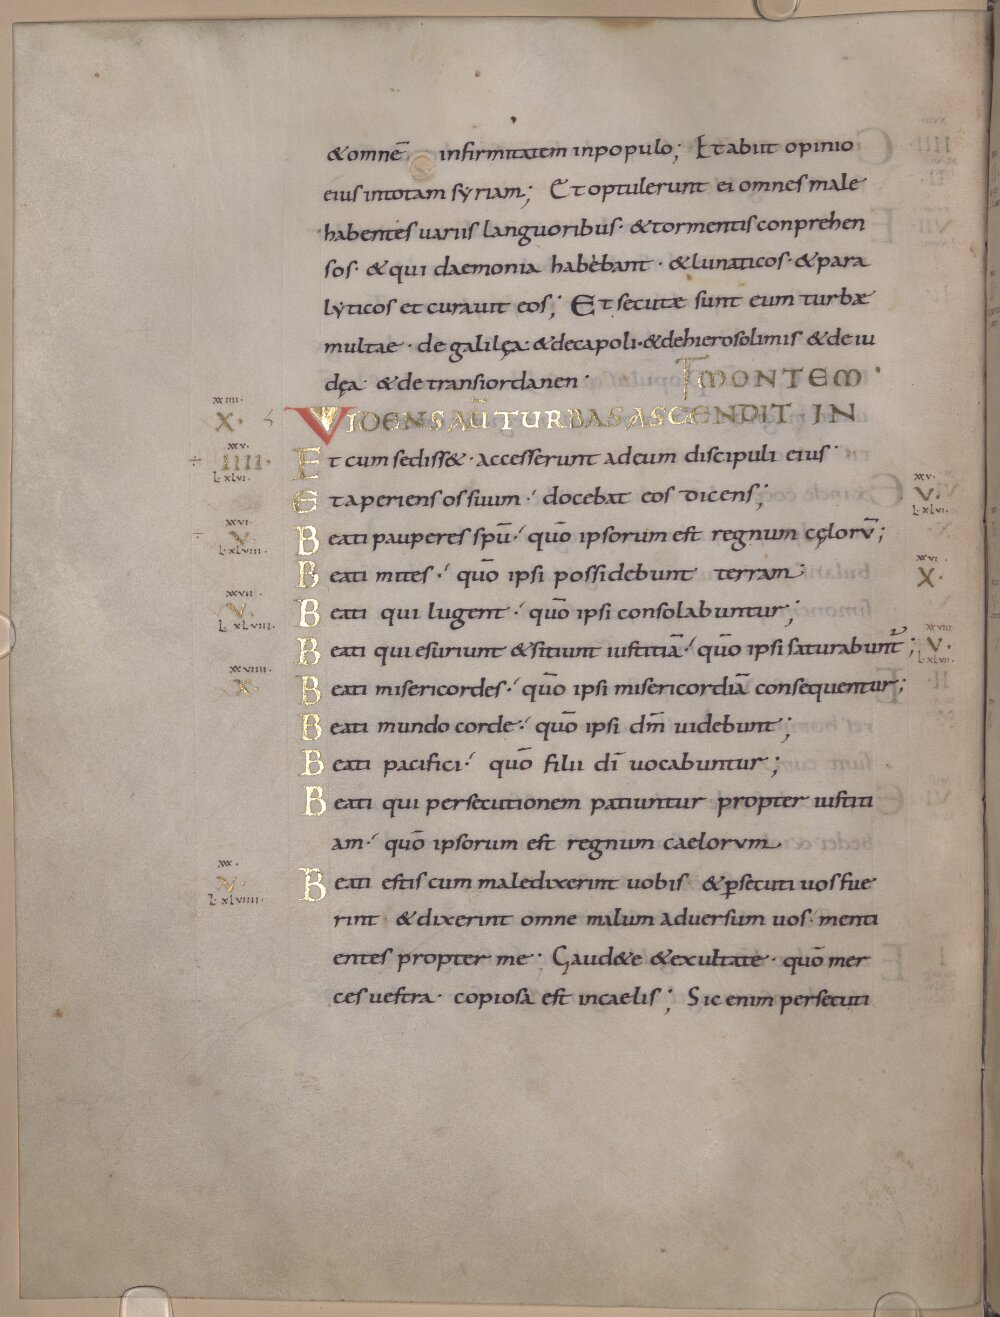 &omnē infirmitatem inpopulo; Et abiit opinio
eius intotam syriam; Et optulerunt ei omnes male
habentes uariis languoribus· &tormentis conprehen
sos· &qui daemonia habebant· &lunaticos· &para
lyticos et curauit eos; Et secutæ sunt eum turbæ
multae· de galilęa· &decapoli· &dehierosolimis &de iu
dęa· &de transiordanen·
MONTEM·
XXIIII.
X. VIDENS AŪ TURBAS ASCENDIT IN
XXV.
IIII. Et cum sediss&· accesserunt adeum discipuli eius·
L. XLVI.
Et aperiens os suum· docebat eos dicens;
XV.
V.
L. XLVI.
XXVI.
V. Beati pauperes spū· quō ipsorum est regnum cęlorv̄;
L. XLVIII.
Beati mites· quō ipsi possidebunt terram·
XXVI.
X.
XXVII.
V. Beati qui lugent· quō ipsi consolabuntur;
L. XLVIII.
Beati qui esuriunt &sitiunt iustitiā· quō ipsi saturabunt̄;
XXVIII
V.
L. XLVII.
XXVIIII.
X. Beati misericordes· quō ipsi misericordiā consequentur;
Beati mundo corde· quō ipsi dm̄ uidebunt;
Beati pacifici· quō filii dī uocabuntur;
Beati qui persecutionem patiuntur propter iustiti
am· quō ipsorum est regnum caelorvm
XXX.
V. Beati estis cum maledixerint uobis &ꝑsecuti uos fue
L. XLVIIII.
rint &dixerint omne malum aduersum uos· menti
entes propter me· Gaud&e &exultate· quō mer
ces uestra· copiosa est incaelis; Sic enim persecuti